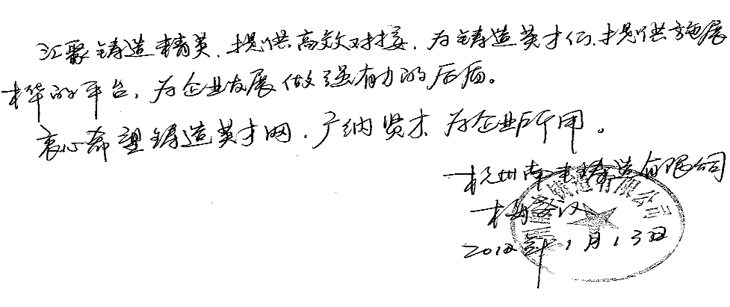 汇聚铸造精英，提供高效对接，为铸造英才们提供施展
才华的平台，为企业发展做强有力的后盾。
衷心希望铸造英才网，广纳贤才为企业所用。
杭州南丰铸造有限公司
杨
1月13日